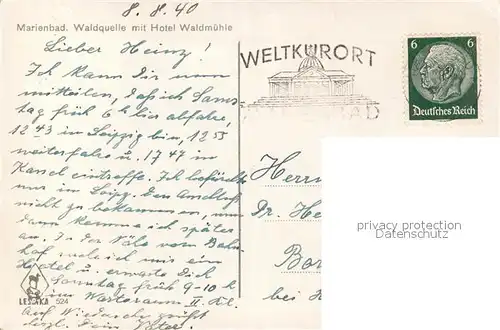 8. 8. 40
Marienbad. Waldquelle mit Hotel Waldmühle
Lieber Heinz!
Ich kann Dir nun
mitteilen, daß ich Sams
tag früh 6 h hier abfahre,
12 43 in Leipzig bin, 12 55
weiterfahre u. 17 47 in
Kassel eintreffe. Ich befürchte
nur in Leipz. den Anschluß
nicht zu bekommen, und
dann komme ich später
an. In der Nähe vom Bahn
hof suche ich mir ein
Hotel u. erwarte Dich
Sonntag früh 9-10 h
im Wartesaal II. Kl.
Auf Wiedersehn grüßt
herzl. Dein Vater
WELTKURORT
BAD
6
6
Deutsches Reich
Herrn
Dr. He
privacy protection
Datenschutz
LESTKA 524